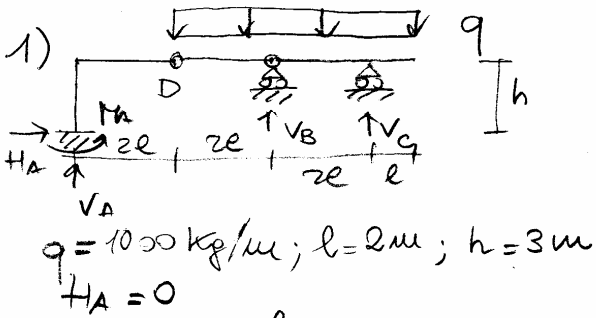 1)
q
D
h
MA
HA
2l
2l
VB
VC
2l
l
VA
q = 1000 kg/m ; l = 2m ; h = 3m
HA = 0